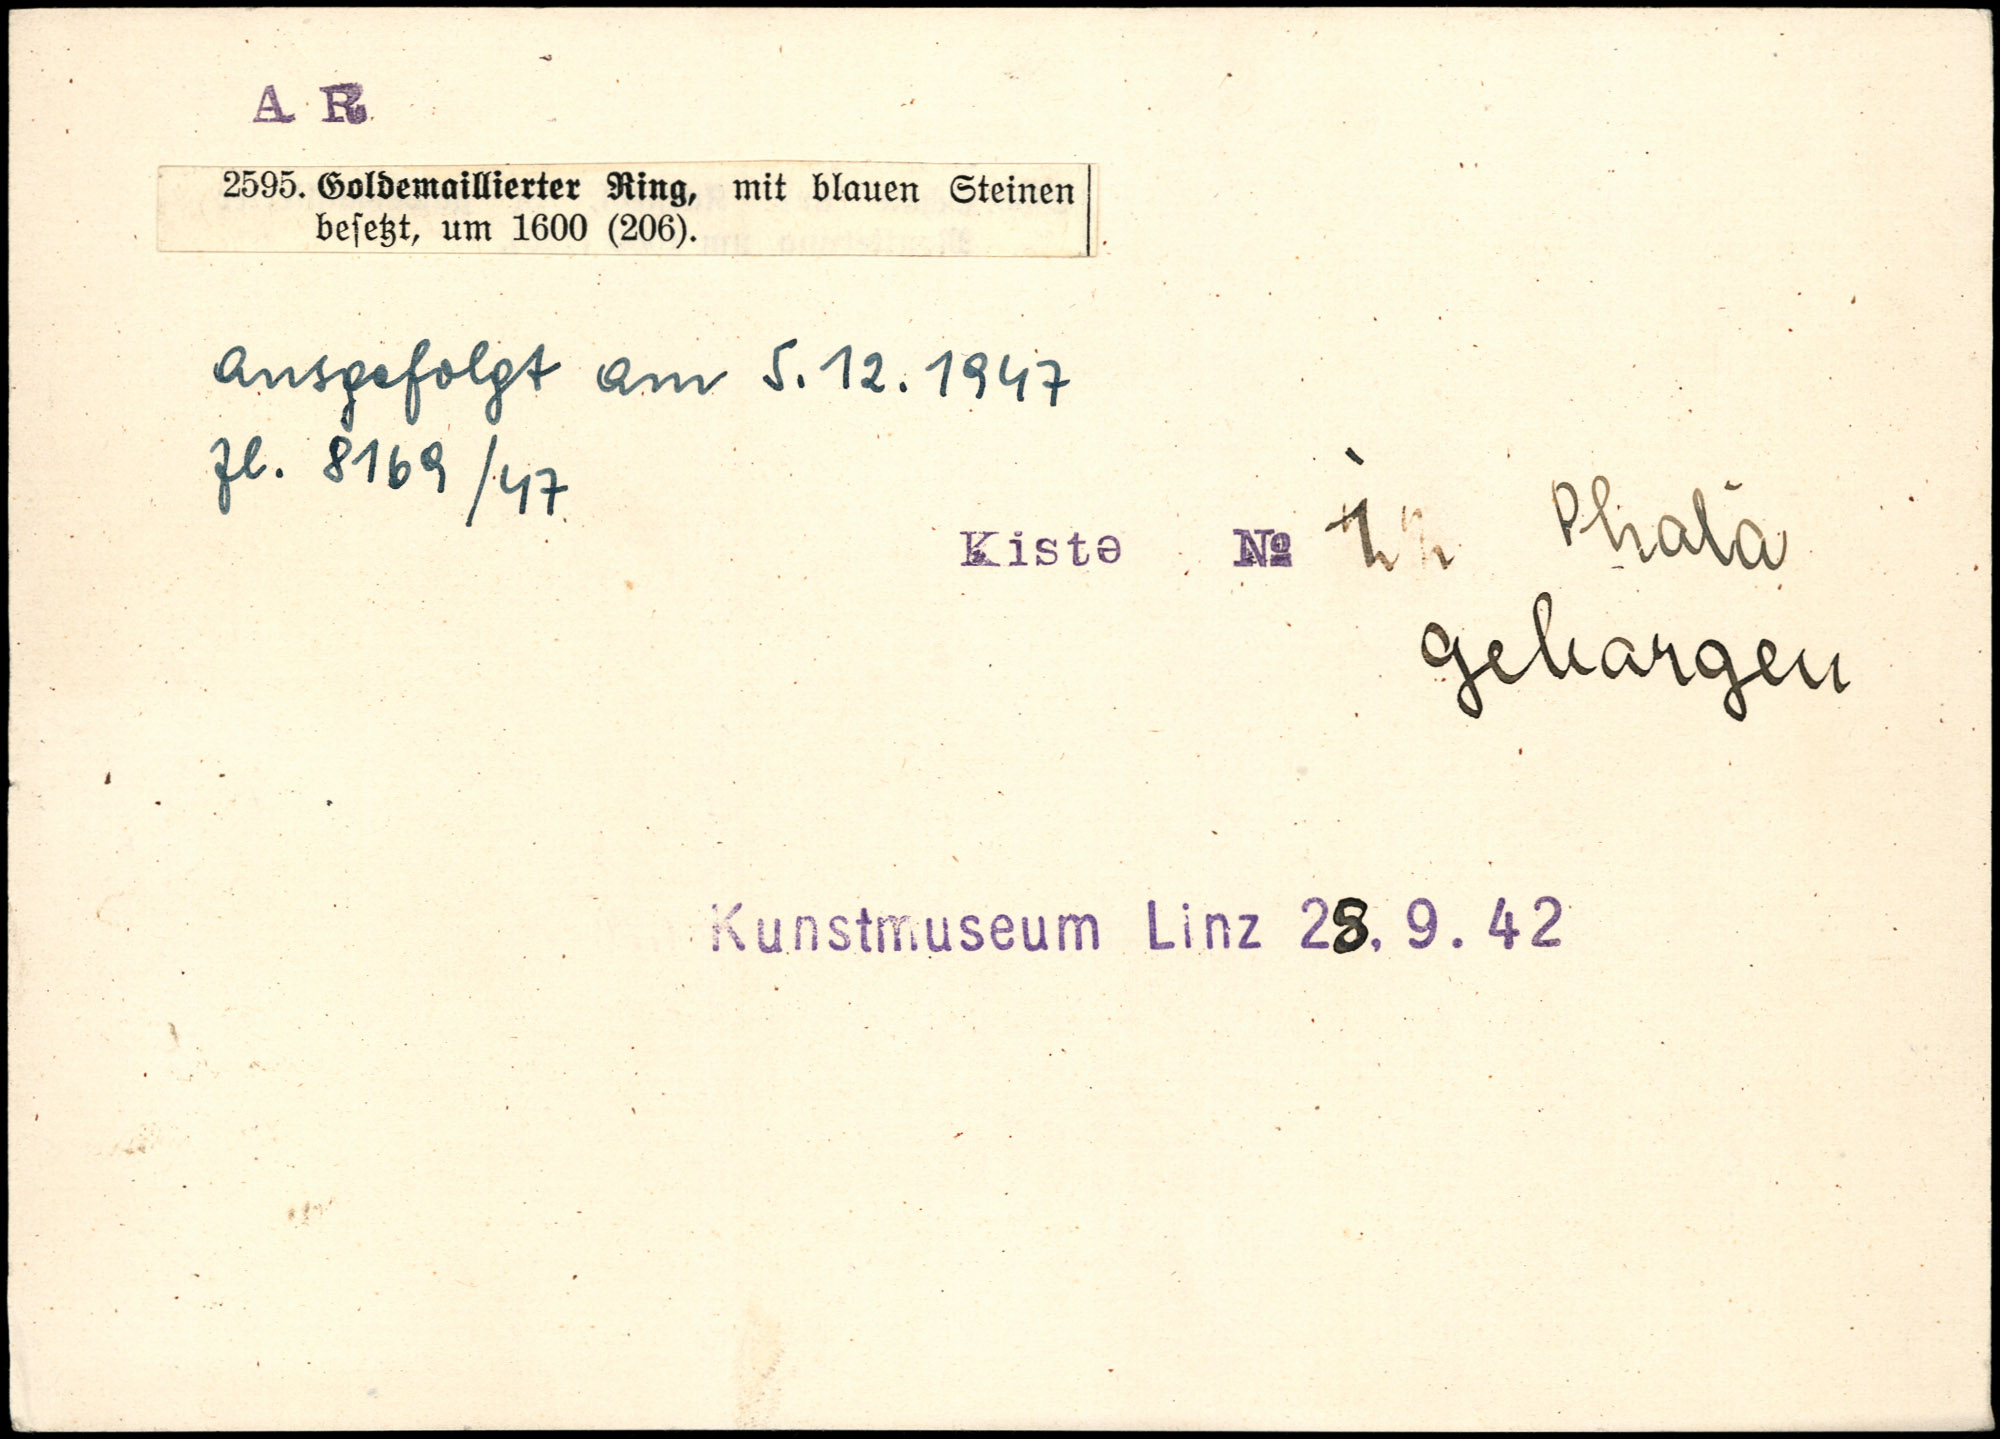 A R
2595. Goldemaillierter Ring, mit blauen Steinen
besetzt, um 1600 (206).
ausgefolgt am 5.12.1947
Zl. 8169/47
Kiste № in Phala
geborgen
Kunstmuseum Linz 28. 9. 42